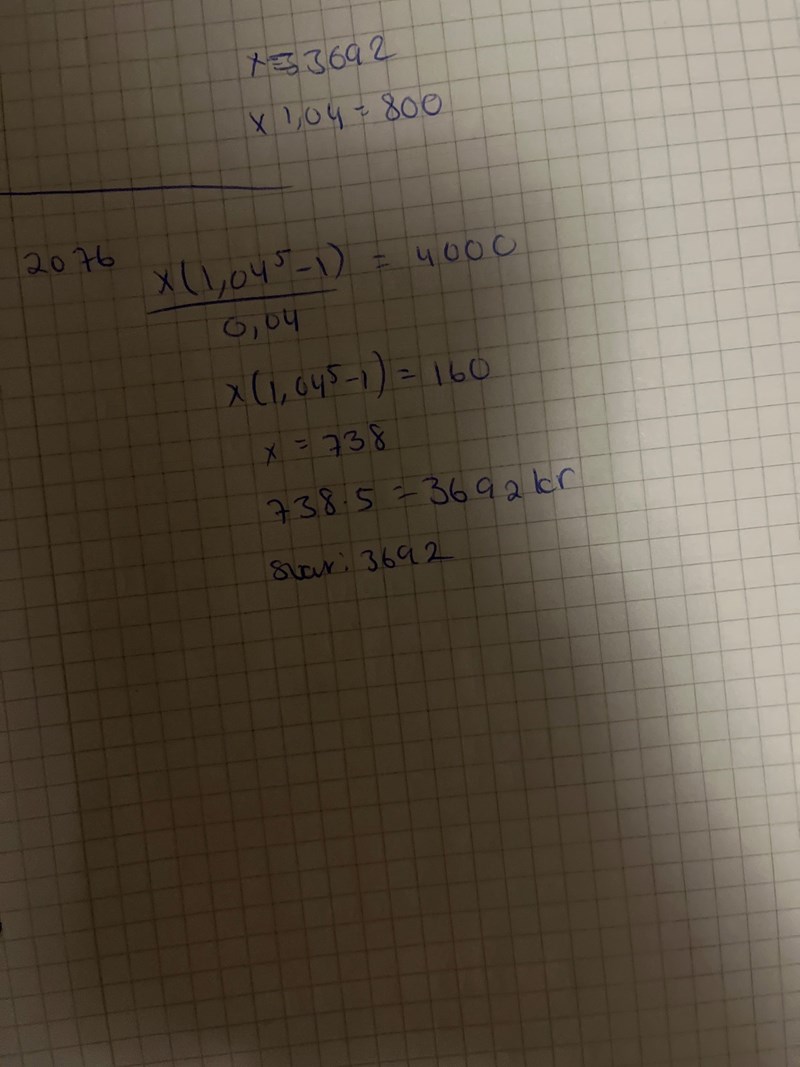 x=3692
x 1,04 = 800
2076
x(1,04⁵-1) = 4000
0,04
x(1,04⁵-1) = 160
x = 738
738·5 = 3692 kr
Svar: 3692